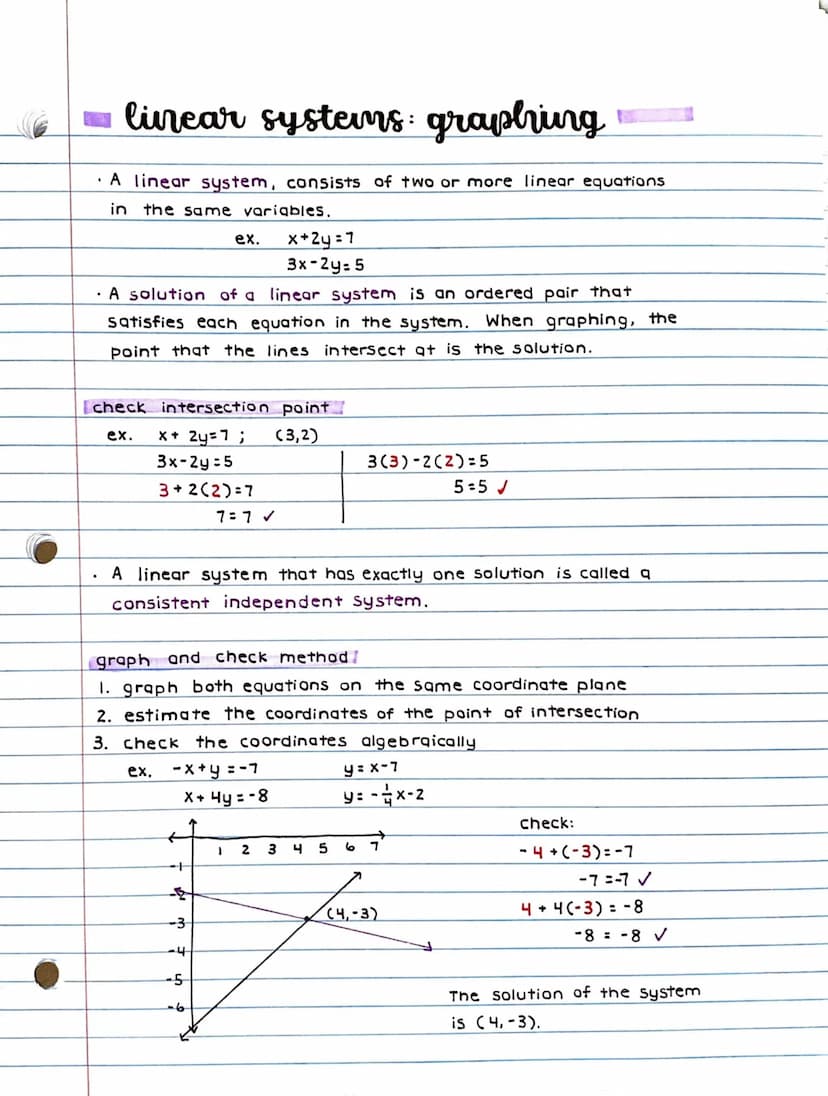 linear systems: graphing
· A linear system, consists of two or more linear equations
in the same variables.
ex. x+2y=7
3x-2y=5
· A solution of a linear system is an ordered pair that
satisfies each equation in the system. When graphing, the
point that the lines intersect at is the solution.
check intersection point
ex. x+ 2y=7 ; (3,2)
3x-2y=5
3+2(2)=7
7=7 ✓
3(3)-2(2)=5
5=5 ✓
· A linear system that has exactly one solution is called a
consistent independent system.
graph and check method
1. graph both equations on the same coordinate plane
2. estimate the coordinates of the point of intersection
3. check the coordinates algebraically
ex. -x+y=-7 y=x-7
x+4y=-8 y=-1/4x-2
1 2 3 4 5 6 7
-1
-2
-3
-4
-5
-6
(4,-3)
check:
-4+(-3)=-7
-7=-7 ✓
4+4(-3)=-8
-8=-8 ✓
The solution of the system
is (4,-3).